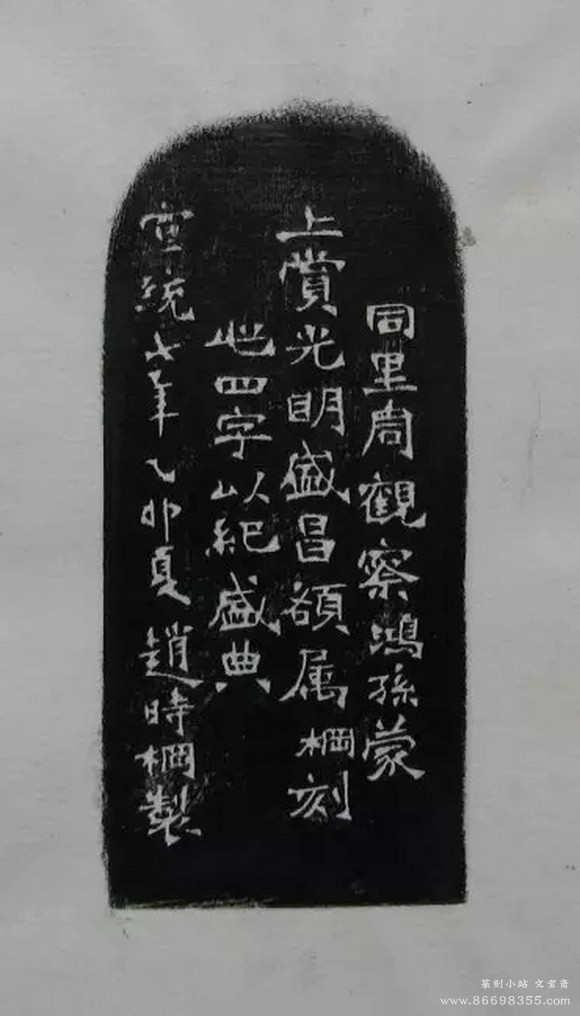 同里周觀察鴻孫蒙
上賞光明盛昌額属棡刻
此四字以紀盛典
宣統七年乙卯夏趙時棡製
篆刻小站 文宝斋
www.86698355.com